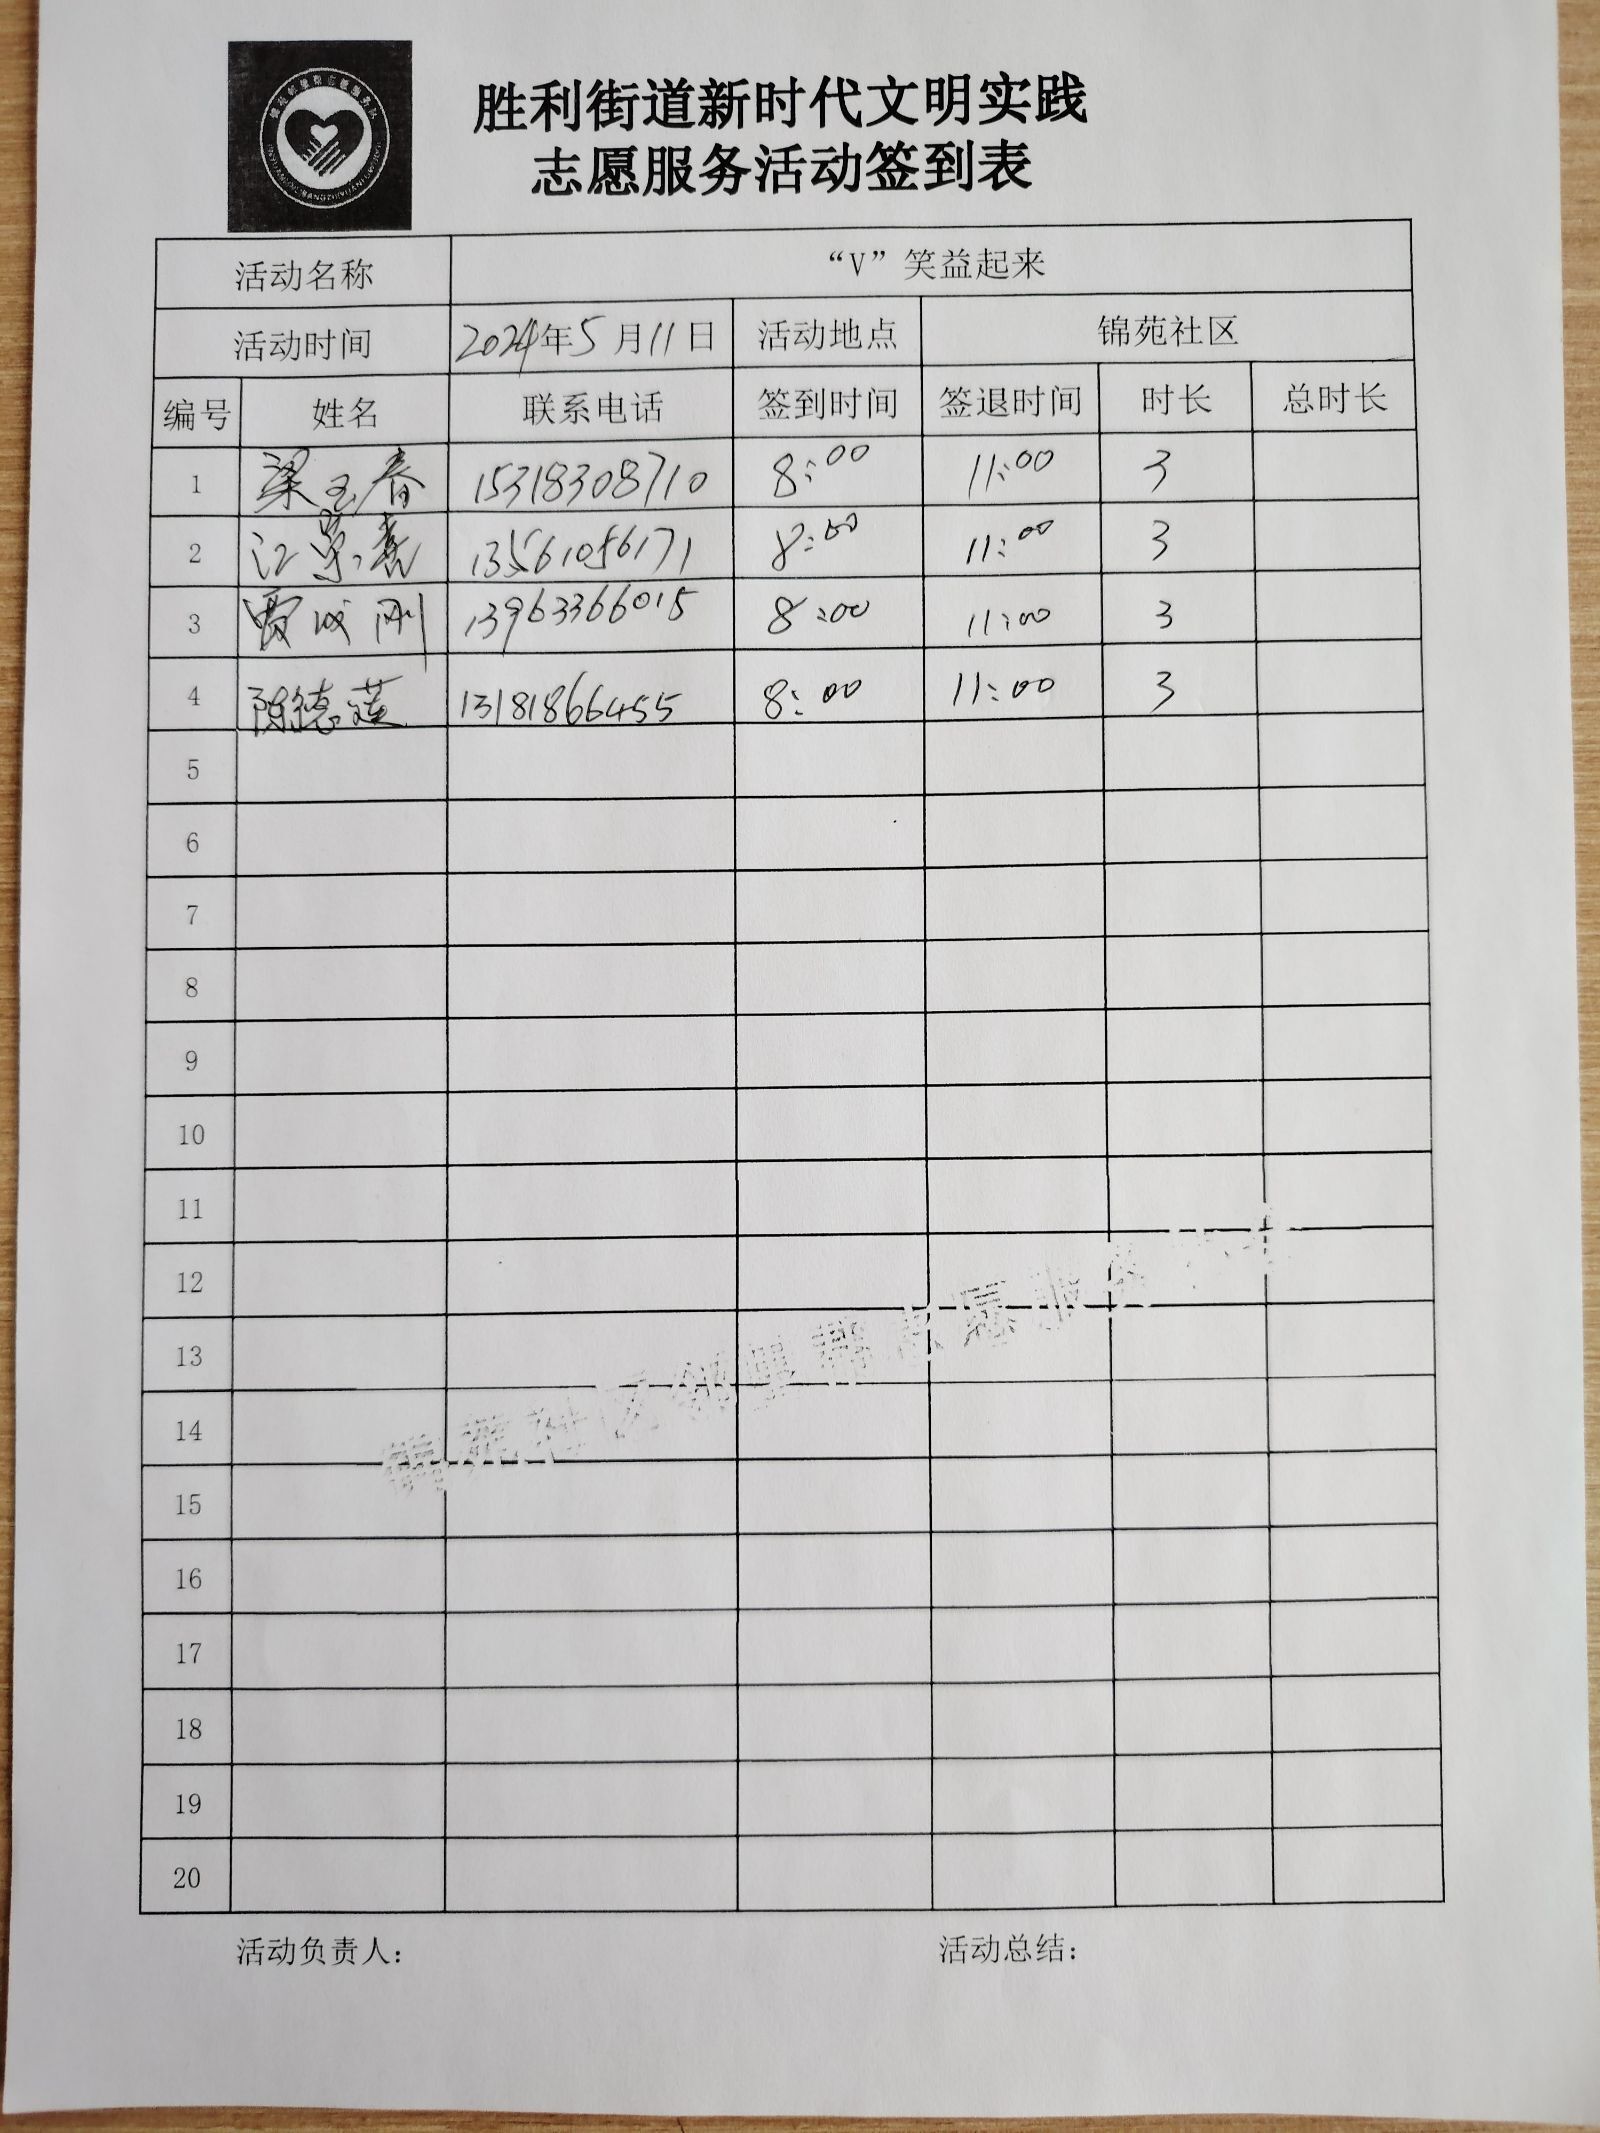 胜利街道新时代文明实践
志愿服务活动签到表
活动名称 “V”笑益起来
活动时间 2024年5月11日 活动地点 锦苑社区
编号 姓名 联系电话 签到时间 签退时间 时长 总时长
1 梁玉春 15318308710 8:00 11:00 3
2 江荣喜 13561056171 8:00 11:00 3
3 贾成刚 13963366015 8:00 11:00 3
4 陈德莲 13181866455 8:00 11:00 3
5
6
7
8
9
10
11
12
13
14
15
16
17
18
19
20
锦苑社区邻里帮志愿服务
活动负责人： 活动总结：